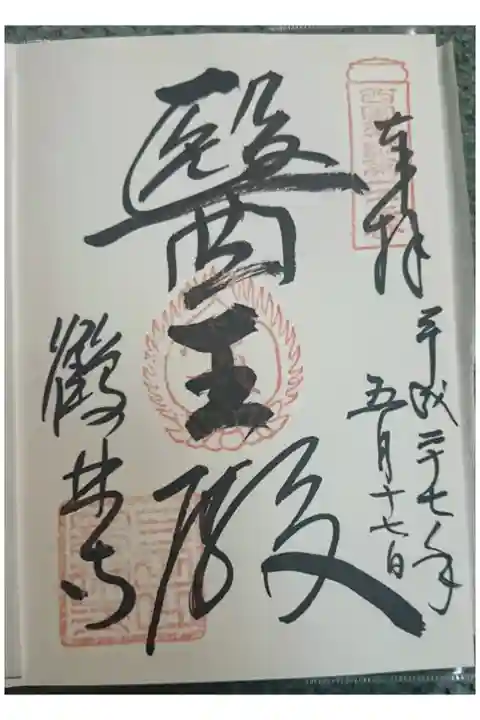 奉拝
平成二十七年
五月十七日
醫王殿
鶴林寺